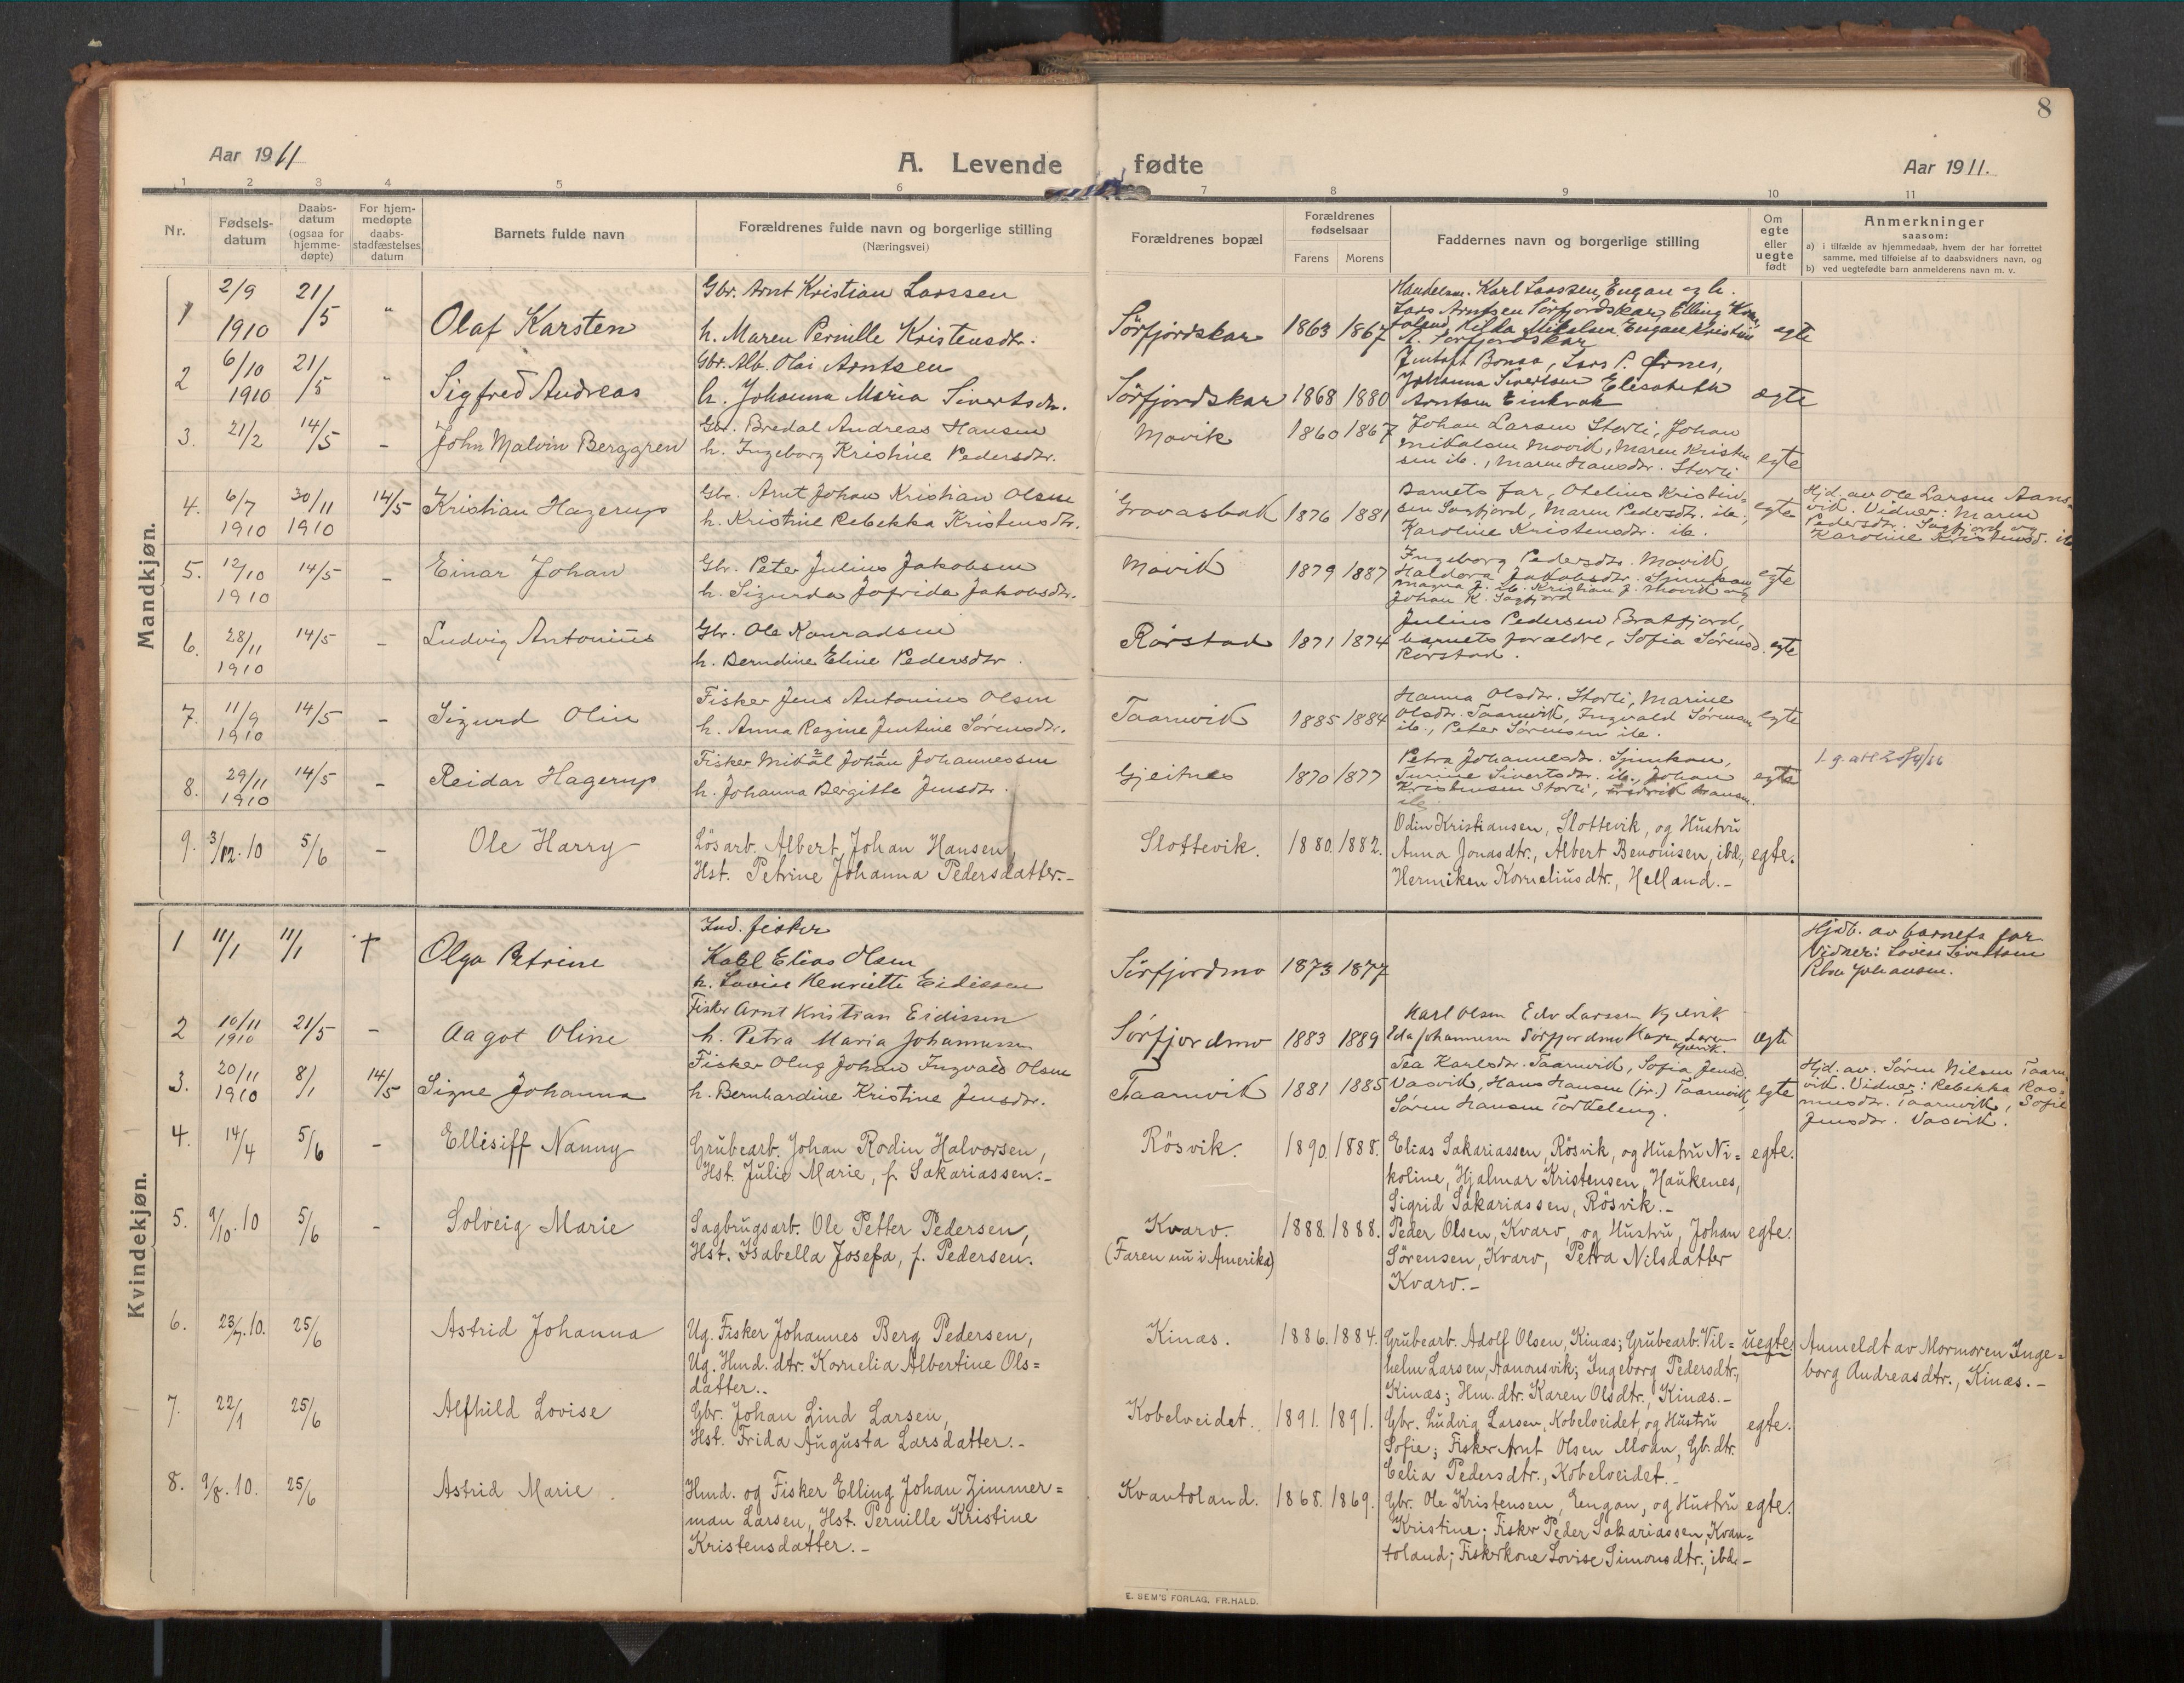 8
Aar 1911
A. Levende fødte
Aar 1911.
1 2 3 4 5 6 7 8 9 10 11
Nr.
Fødsels-
datum
Daabs-
datum
(ogsaa for
hjemme-
døpte)
For hjem-
medøpte
daabs-
stadfæstelses
datum
Barnets fulde navn
Forældrenes fulde navn og borgerlige stilling
(Næringsvei)
Forældrenes bopæl
Forældrenes
fødselsaar
Farens Morens
Faddernes navn og borgerlige stilling
Om
egte
eller
uegte
født
Anmerkninger
saasom:
a) i tilfælde av hjemmedaab, hvem der har forrettet
samme, med tilføielse af to daabsvidners navn, og
b) ved uegtefødte barn anmelderens navn m. v.
Mandkjøn.
1
2/9
1910
21/5
"
Olaf Karsten
Gbr. Arnt Kristian Larssen
h. Maren Pernille Kristensdtr.
Sörfjordskar 1863 1867
Handelsm. Karl Larssen, Engan og h.
Lars Arntsen Sörfjordskar, Elling Kvan
toland, Hilda Mikalsen Engan Kristin
A. Sörfjordskar
egte
2
6/10
1910
21/5
"
Sigfred Andreas
Gbr. Alb. Olai Arntsen
h. Johanna Maria Sivertsdtr.
Sörfjordskar 1868 1880
Jentoft Bonsa, Lars P. Ørnes,
Johanna Sivertsen Elisabeth
Arntsen Einkvak
egte
3. 21/2 14/5 -
John Malvin Berggren
Gbr. Bredal Andreas Hansen
h. Ingeborg Kristine Pedersdtr.
Movik 1860 1867
Johan Larsen Storli, Johan
Mikalsen Movik, Maren Kristen
sen ib., Maren Hansdtr. Storli
egte
4. 6/7
1910
30/11
1910
14/5
Kristian Hagerup
Gbr. Arnt Johan Kristian Olsen
h. Kristine Rebekka Kristensdtr.
Gravasbak 1876 1881
Barnets far, Otelius Kristin-
sen Sagfjord, Maren Pedersdtr. ib.,
Karoline Kristensdtr. ib.
egte
Hjd. av Ole Larsen Aans-
vik. Vidner: Maren
Pedersdtr. Sagfjord og
Karoline Kristensd. ib
5. 12/10
1910
14/5 -
Einar Johan
Gbr. Peter Julius Jakobsen
h. Sigurda Jofrida Jakobsdtr.
Movik 1879 1887
Ingeborg Pedersdtr. Movik,
Haldora Jakobsdtr. Sjunkan
Magna J. ib. Kristian J. Movik og
Johan K. Sagfjord
egte
6. 28/11
1910
14/5 -
Ludvig Antonius
Gbr. Ole Konradsen
h. Berndine Eline Pedersdtr.
Rørstad 1871 1874
Julius Pedersen Bratfjord,
barnets forældre, Sofia Sørensd.
Rørstad.
egte
7. 11/9
1910
14/5 -
Sigurd Olin
Fisker Jens Antonius Olsen
h. Anna Regine Jentine Sørensdtr.
Taarnvik 1885 1884
Hanna Olsdtr. Storli, Marine
Olsdtr. Taarnvik, Ingvald Sørensen
ib., Peter Sørensen ib.
egte
8. 29/11
1910
14/5 -
Reidar Hagerup
Fisker Mikal Johan Johannessen
h. Johanna Bergitte Jensdtr.
Gjeitnes 1870 1877
Petra Johannesdtr. Sjunkan,
Sivertsdtr. ib., Johan
Kristensen Storli, Fredrik Hansen
ib.
egte
9. 3/12.10 5/6 -
Ole Harry
Lösarb. Albert Johan Hansen,
Hst. Petrine Johanna Pedersdatter.-
Slottevik. 1880. 1882.
Odin Kristiansen, Slottevik, og Hustru
Anna Jonasdtr., Albert Benonisen, ibd.,
Henniken Korneliusdtr., Helland.-
egte.
Kvindekjøn.
1 11/1 11/1 †
Olga Petrine
Ind. fisker
Karl Elias Olsen
h. Lovise Henriette Eidissen
Sörfjordmo 1873 1877
Hjdb. av barnets far
Vidner: Lovise Sivertsen
Johansen.
2 10/11
1910
21/5 -
Aagot Oline
Fisker Arnt Kristian Eidissen
h. Petra Maria Johannessen
Sörfjordmo 1883 1889
Karl Olsen Edv Larsen Kjelvik
Eda Johannesen Sörfjordmo Karen Larsen
Kjelvik.
egte
3. 20/11
1910
8/1
14/5
Signe Johanna
Fisker Oluf Johan Ingvald Olsen
h. Bernhardine Kristine Jensdtr.
Taarnvik 1881 1885
Tea Karlsdtr. Taarnvik, Sofia Jensd.
Vasvik, Hans Hansen (jr.) Taarnvik,
Søren Hansen Torkeleng.
egte
Hjd. av. Søren Nilsen Taarn
vik. Vidner: Rebekka Ras-
musdtr. Taarnvik, Sofie
Jensdtr. Vasvik.
4. 14/4 5/6 -
Ellisiff Nanny
Grubearb. Johan Rodin Halvorsen,
Hst. Julie Marie, f. Sakariassen.-
Rösvik. 1890. 1888.
Elias Sakariassen, Rösvik, og Hustru Ni-
koline, Hjalmar Kristensen, Haukenes,
Sigrid Sakariassen, Rösvik.-
egte.
5. 9/10.10 5/6 -
Solveig Marie
Sagbrugsarb. Ole Petter Pedersen,
Hst. Isabella Josefa, f. Pedersen.
Kvarv.
(Faren nu i Amerika)
1888. 1888.
Peder Olsen, Kvarv, og Hustru, Johan
Sörensen, Kvarv, Petra Nilsdatter
Kvarv.-
egte.
6. 23/7.10. 25/6
Astrid Johanna
Ug. Fisker Johannes Berg Pedersen,
Ug. Hmd. dtr. Kornelia Albertine Ols=
datter..
Kinæs. 1886. 1884.
Grubearb. Adolf Olsen, Kinæs; Grubearb. Vil=
helm Larsen, Aanonsvik; Ingeborg Pedersdtr.,
Kinæs; Hm. dtr. Karen Olsdtr., Kinæs.-
uegte
Anmeldt av Mormoren Inge=
borg Andreasdtr., Kinæs.-
7. 22/1 25/6
Alfhild Lovise
Gbr. Johan Lind Larsen,
Hst. Frida Augusta Larsdatter.-
Kobelveidet. 1891. 1891.
Gbr. Ludvig Larsen, Kobelveidet, og Hustru
Sofie; Fisker Arnt Olsen Moan, Gb. dtr.
Celia Pedersdtr., Kobelveidet.-
egte.
8. 9/8.10. 25/6
Astrid Marie.
Hmd. og Fisker Elling Johan Zimmer=
man Larsen, Hst. Pernille Kristine
Kristensdatter.-
Kvantoland. 1868. 1869.
Gbr. Ole Kristensen, Engan, og Hustru
Kristine; Fisker Peder Sakariassen, Kvan=
toland; Fiskerkone Lovise Simonsdtr., ibd.-
egte.
E. SEM'S FORLAG, FR.HALD.